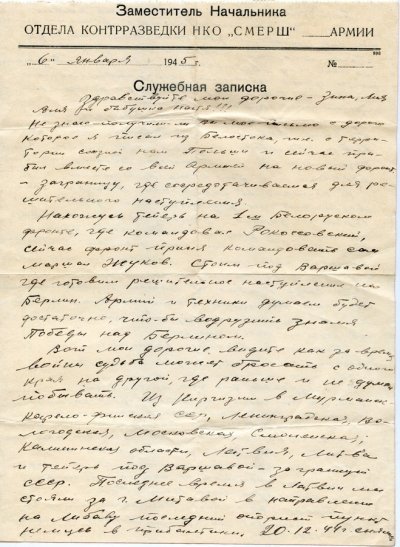 Заместитель Начальника
ОТДЕЛА КОНТРРАЗВЕДКИ НКО „СМЕРШ" АРМИИ
"6" января 1945 г. №
Служебная записка
Здравствуйте мои дорогие – Зина, Лия
Не знаю получили ли мое письмо с дороги
которое я писал из Белостока, т.е. с терри-
тории союзной нам Польши и сейчас при-
был вместе со всей Армией на новый фронт
– заграницу, где сосредотачиваемся для ре-
шительного наступления.
Нахожусь теперь на 1ом Белорусском
фронте, где командовал Рокоссовский,
сейчас фронт принял командовать сам
маршал Жуков. Стоим под Варшавой
где готовим решительное наступление на
Берлин. Армии и техники думаем будет
достаточно, что-бы водрузить знамя
Победы над Берлином.
Вот мои дорогие видите как за время
войны судьба может бросать с одного
края на другой, где раньше и не думал
побывать. Из Киргизии в Мурманск
Карело-Финская сср, Ленинградская, Во-
логодская, Московская, Смоленская,
Калининская области, Латвия, Литва
и теперь под Варшавой – за границу
ссср. Последнее время в Латвии мы
стояли за г. Митавой в направлении
на Либаву последний опорный пункт
немцев в прибалтике. 20.12.44г